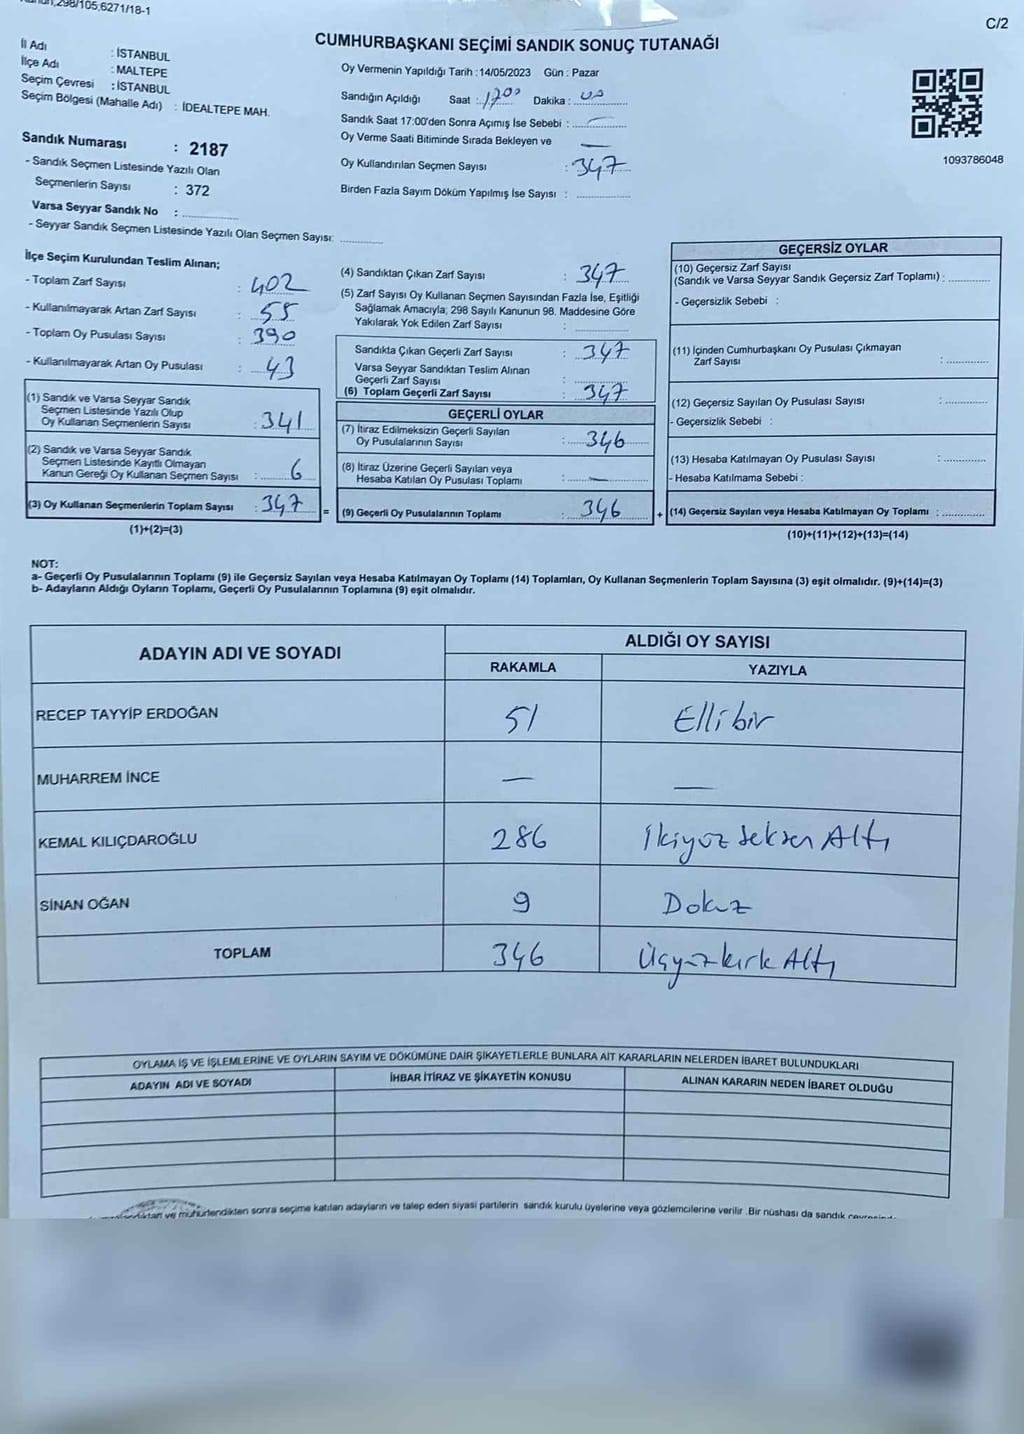 298/105;6271/18-1
C/2
CUMHURBAŞKANI SEÇİMİ SANDIK SONUÇ TUTANAĞI
İl Adı : İSTANBUL
İlçe Adı : MALTEPE
Seçim Çevresi : İSTANBUL
Seçim Bölgesi (Mahalle Adı) : İDEALTEPE MAH.
Sandık Numarası : 2187
- Sandık Seçmen Listesinde Yazılı Olan
Seçmenlerin Sayısı : 372
Varsa Seyyar Sandık No :
- Seyyar Sandık Seçmen Listesinde Yazılı Olan Seçmen Sayısı:
Oy Vermenin Yapıldığı Tarih :14/05/2023 Gün : Pazar
Sandığın Açıldığı Saat : 1700 Dakika :
Sandık Saat 17:00'den Sonra Açımış İse Sebebi : —
Oy Verme Saati Bitiminde Sırada Bekleyen ve —
Oy Kullandırılan Seçmen Sayısı : 347
Birden Fazla Sayım Döküm Yapılmış İse Sayısı :
1093786048
İlçe Seçim Kurulundan Teslim Alınan;
- Toplam Zarf Sayısı : 402
- Kullanılmayarak Artan Zarf Sayısı : 55
- Toplam Oy Pusulası Sayısı : 390
- Kullanılmayarak Artan Oy Pusulası : 43
(1) Sandık ve Varsa Seyyar Sandık
Seçmen Listesinde Yazılı Olup
Oy Kullanan Seçmenlerin Sayısı : 341
(2) Sandık ve Varsa Seyyar Sandık
Seçmen Listesinde Kayıtlı Olmayan
Kanun Gereği Oy Kullanan Seçmen Sayısı : 6
(3) Oy Kullanan Seçmenlerin Toplam Sayısı : 347 =
(1)+(2)=(3)
(4) Sandıktan Çıkan Zarf Sayısı : 347
(5) Zarf Sayısı Oy Kullanan Seçmen Sayısından Fazla İse, Eşitliği
Sağlamak Amacıyla; 298 Sayılı Kanunun 98. Maddesine Göre
Yakılarak Yok Edilen Zarf Sayısı :
Sandıkta Çıkan Geçerli Zarf Sayısı : 347
Varsa Seyyar Sandıktan Teslim Alınan
Geçerli Zarf Sayısı :
(6) Toplam Geçerli Zarf Sayısı : 347
GEÇERLİ OYLAR
(7) İtiraz Edilmeksizin Geçerli Sayılan
Oy Pusulalarının Sayısı : 346
(8) İtiraz Üzerine Geçerli Sayılan veya
Hesaba Katılan Oy Pusulası Toplamı : —
(9) Geçerli Oy Pusulalarının Toplamı : 346 +
GEÇERSİZ OYLAR
(10) Geçersiz Zarf Sayısı
(Sandık ve Varsa Seyyar Sandık Geçersiz Zarf Toplamı) :
- Geçersizlik Sebebi :
(11) İçinden Cumhurbaşkanı Oy Pusulası Çıkmayan
Zarf Sayısı :
(12) Geçersiz Sayılan Oy Pusulası Sayısı :
- Geçersizlik Sebebi :
(13) Hesaba Katılmayan Oy Pusulası Sayısı :
- Hesaba Katılmama Sebebi :
(14) Geçersiz Sayılan veya Hesaba Katılmayan Oy Toplamı :
(10)+(11)+(12)+(13)=(14)
NOT:
a- Geçerli Oy Pusulalarının Toplamı (9) ile Geçersiz Sayılan veya Hesaba Katılmayan Oy Toplamı (14) Toplamları, Oy Kullanan Seçmenlerin Toplam Sayısına (3) eşit olmalıdır. (9)+(14)=(3)
b- Adayların Aldığı Oyların Toplamı, Geçerli Oy Pusulalarının Toplamına (9) eşit olmalıdır.
ADAYIN ADI VE SOYADI
ALDIĞI OY SAYISI
RAKAMLA YAZIYLA
RECEP TAYYİP ERDOĞAN 51 Ellibir
MUHARREM İNCE — —
KEMAL KILIÇDAROĞLU 286 İkiyüz seksen Altı
SİNAN OĞAN 9 Dokuz
TOPLAM 346 Üçyüzkırk Altı
OYLAMA İŞ VE İŞLEMLERİNE VE OYLARIN SAYIM VE DÖKÜMÜNE DAİR ŞİKAYETLERLE BUNLARA AİT KARARLARIN NELERDEN İBARET BULUNDUKLARI
ADAYIN ADI VE SOYADI İHBAR İTİRAZ VE ŞİKAYETİN KONUSU ALINAN KARARIN NEDEN İBARET OLDUĞU
ve mühürlendikten sonra seçime katılan adayların ve talep eden siyasi partilerin sandık kurulu üyelerine veya gözlemcilerine verilir .Bir nüshası da sandık